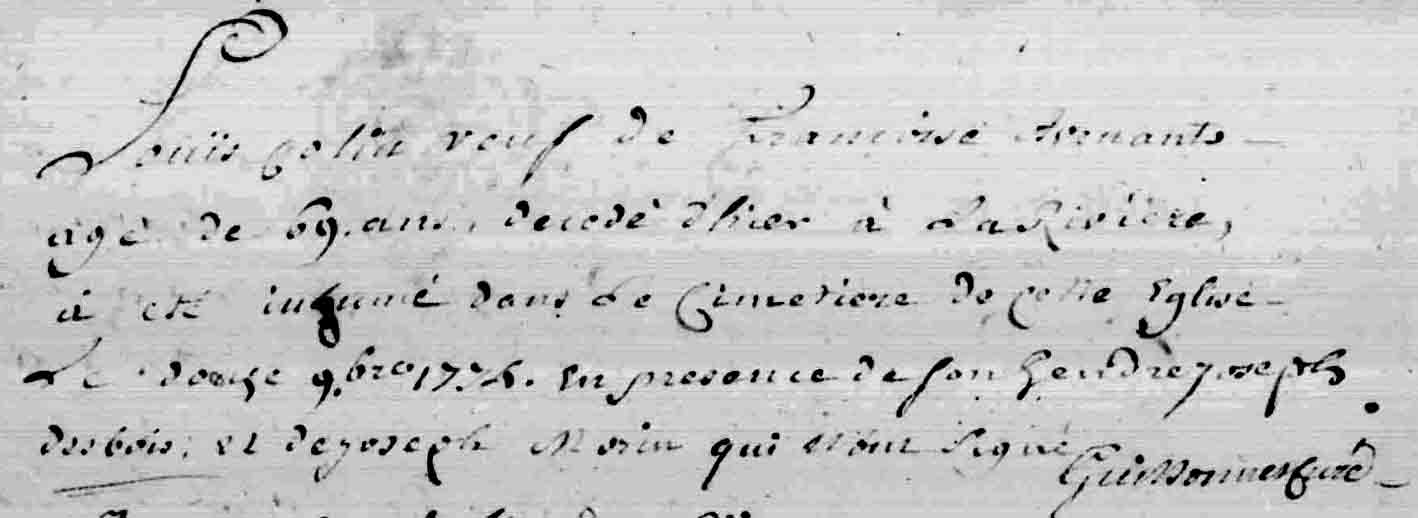 Louïs Colin veuf de Françoise Avenants
agé de 69. ans, decedé d'hier à La Riviere,
à eté inhumé dans Le Cimetiere de cette Eglise
Le douze 9.bre 1774. En presence de son Gendre joseph
desbois, et de joseph Morin qui n'ont signé
curé